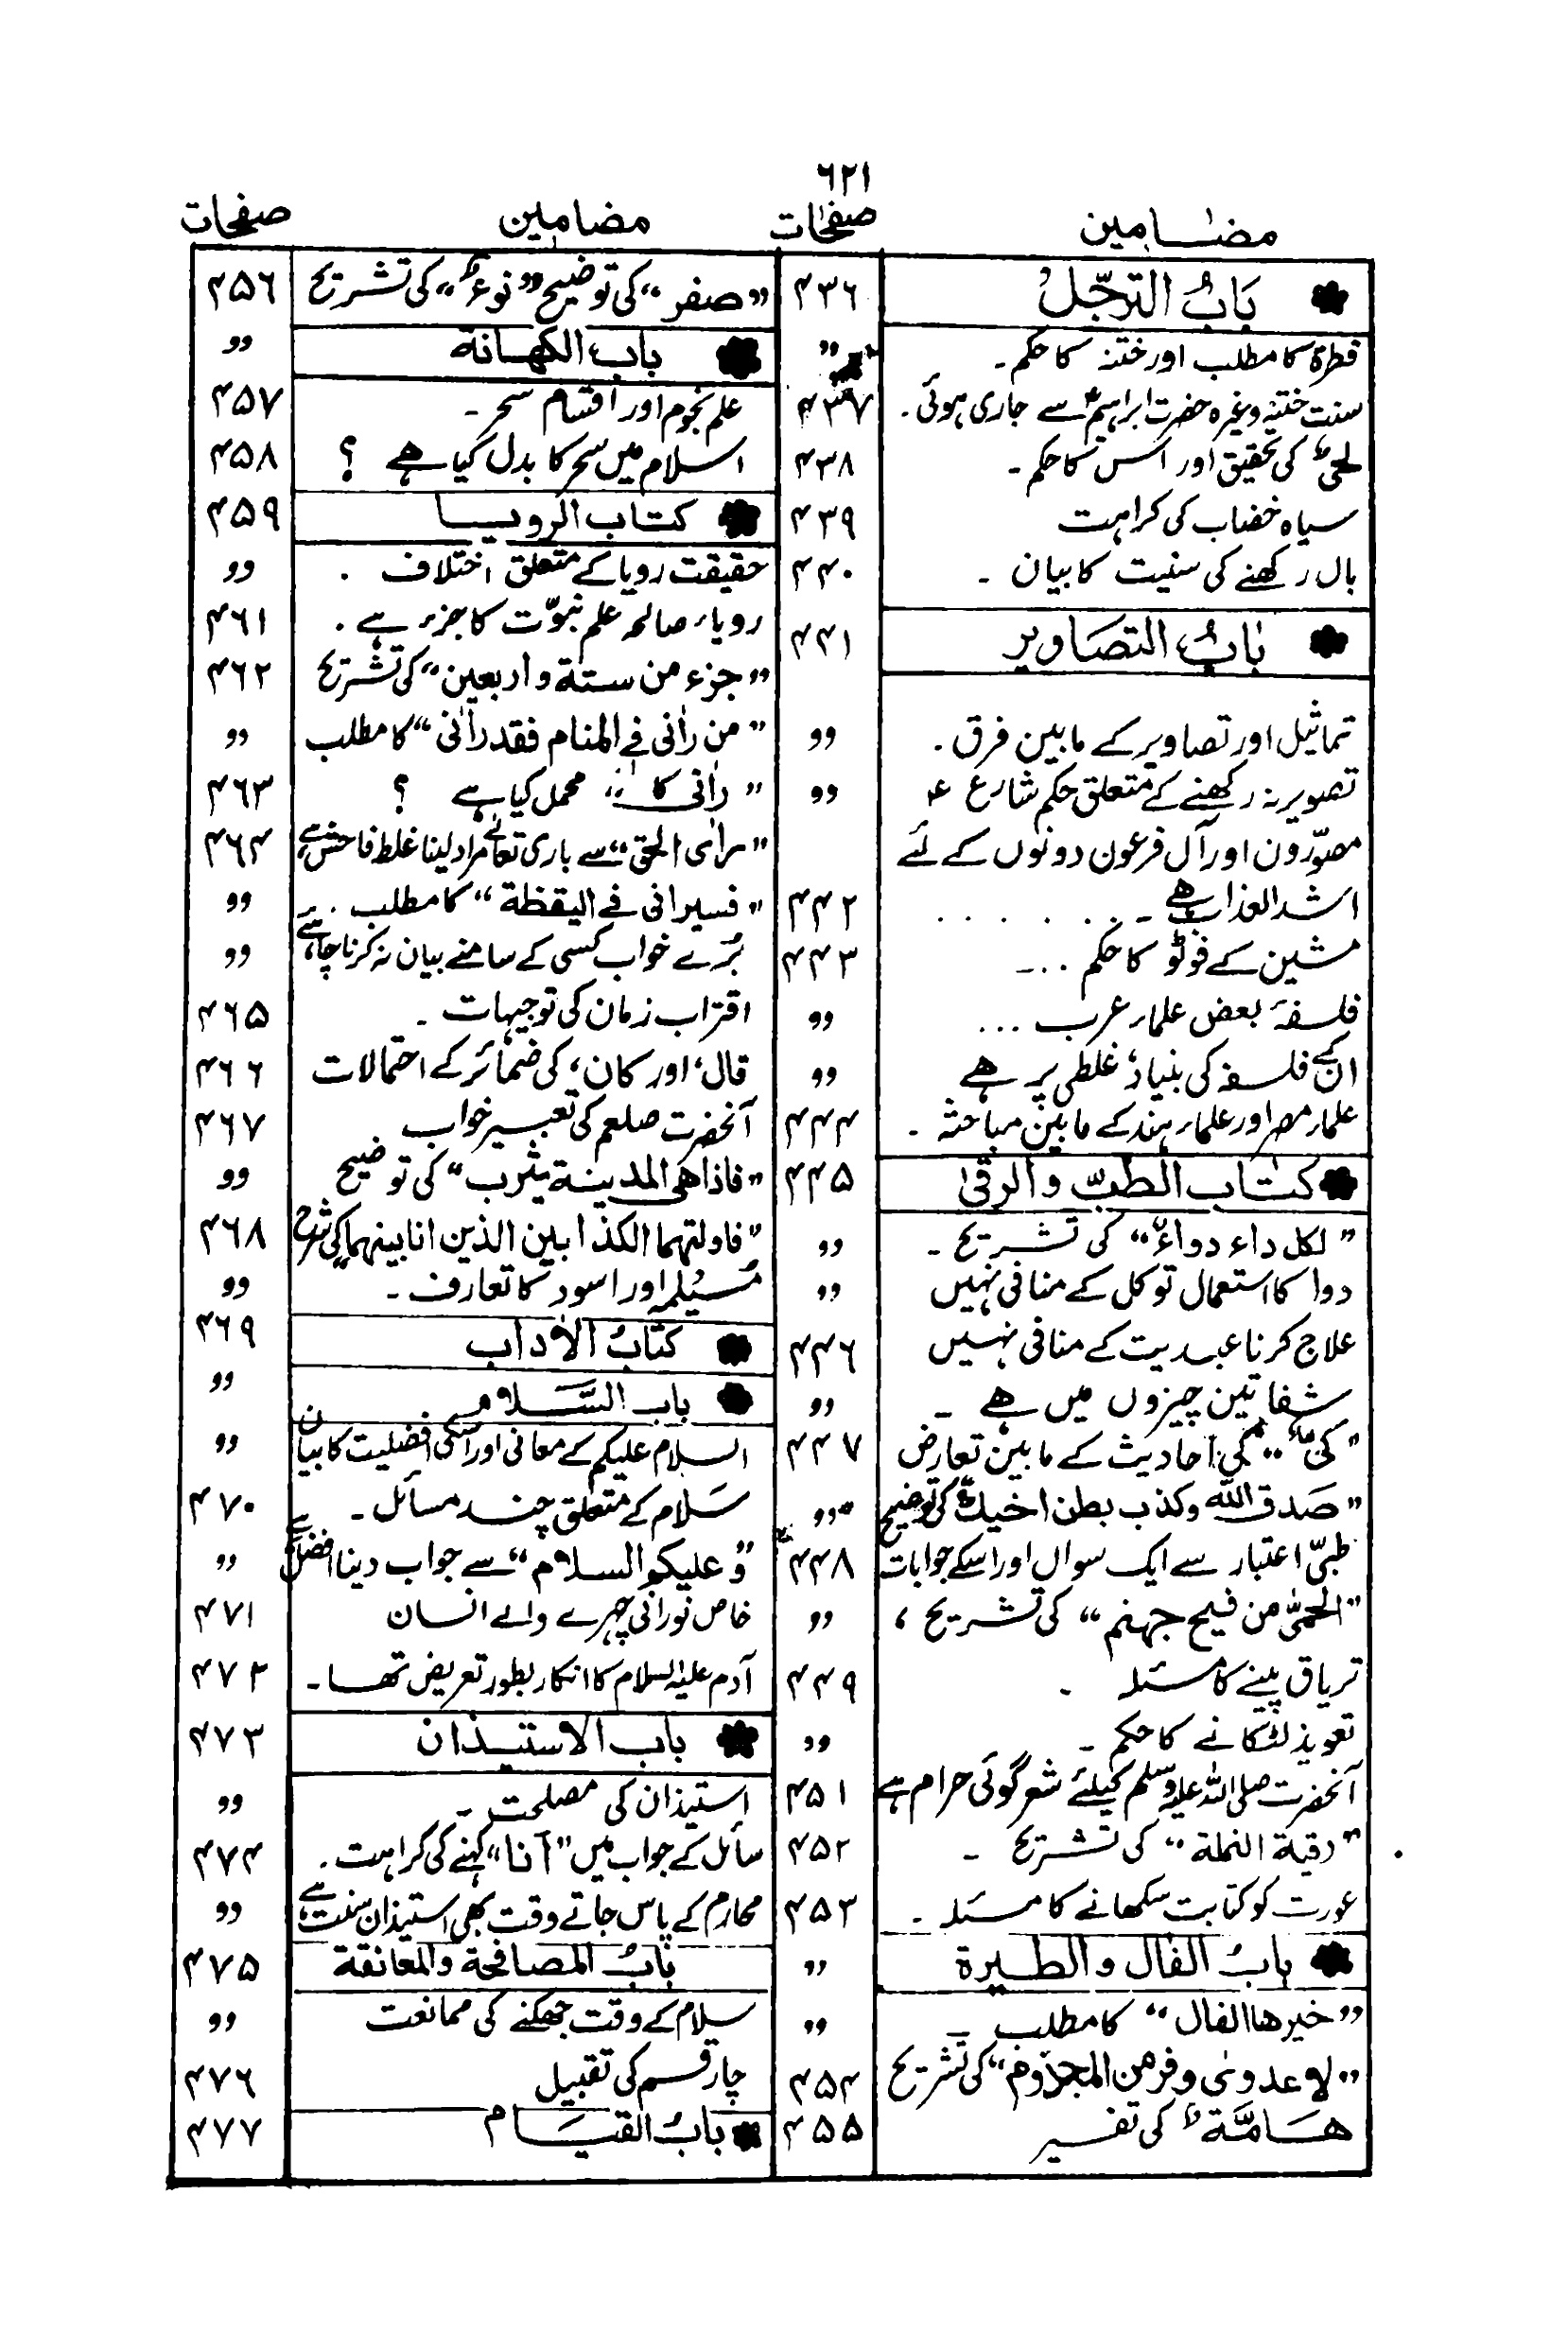 ۶۲۱
مضامین صفحات
❋ بَابُ الترجّل ۴۳۶
فطرۃ کا مطلب اور ختنہ کا حکم ۔ ״
سنت ختنہ وغیرہ حضرت ابراہیمؑ سے جاری ہوئی ۔ ۴۳۷
لحیؔ کی تحقیق اور اس کا حکم ۔ ۴۳۸
سیاہ خضاب کی کراہت ۴۳۹
بال رکھنے کی سنیت کا بیان ۔ ۴۴۰
❋ بَابُ التصَاویر ۴۴۱
تماثیل اور تصاویر کے مابین فرق ۔ ״
تصویر نہ رکھنے کے متعلق حکم شارع ؑ ״
مصوّرون اور آل فرعون دونوں کے لئے
اشد العذاب ہے ۔ . . . . . . ۴۴۲
مشین کے فوٹو کا حکم ... ۴۴۳
فلسفۂ بعض علماء عرب ... ״
ان کے فلسفہ کی بنیاد غلطی پر ہے ״
علماء مصر اور علماء ہند کے مابین مباحثہ ۔ ۴۴۴
❋ کتاب الطبّ والرقیٰ ۴۴۵
”لکل داء دواءٌ“ کی تشریح ۔ ״
دوا کا استعمال توکل کے منافی نہیں ״
علاج کرنا عبدیت کے منافی نہیں ۴۴۶
شفا تین چیزوں میں ہے ۔ ״
”کیّ“ کی احادیث کے مابین تعارض ۴۴۷
”صَدق اللہ وکذب بطن اخیک“ کی توضیح ״
طبّی اعتبار سے ایک سوال اور اسکے جوابات ۴۴۸
”الحمّٰی من فیح جہنم“ کی تشریح ، ״
تریاق پینے کا مسئلہ ۔ ۴۴۹
تعویذ لٹکانے کا حکم ۔ ״
آنحضرت صلی اللہ علیہ وسلم کیلئے شعر گوئی حرام ہے ۴۵۱
”رقیة النملة“ کی تشریح ۔ ۴۵۲
عورت کو کتابت سکھانے کا مسئلہ ۔ ۴۵۳
❋ بابُ الفال والطیرة ״
”خیرها الفال“ کا مطلب ۔ ״
”لا عدوٰی وفر من المجذوم“ کی تشریح ۴۵۴
ھَامَّۃٌ کی تفسیر ۴۵۵
مضامین صفحات
”صفر“ کی توضیح ”نوءٌ“ کی تشریح ۴۵۶
❋ باب الکھانة ״
علم نجوم اور اقسام سحر ۔ ۴۵۷
اسلام میں سحر کا بدل کیا ہے ؟ ۴۵۸
❋ کتاب الرویا ۴۵۹
حقیقت رویا کے متعلق اختلاف . ״
رویاء صالحہ علم نبوّت کا جزء ہے . ۴۶۱
”جزء من ستة واربعین“ کی تشریح ۴۶۲
”من راٰنی فی المنام فقد راٰنی“ کا مطلب ״
”راٰنی“ کا محمل کیا ہے ؟ ۴۶۳
”راٰی الحق“ سے باری تعالےٰ مراد لینا غلط فاحش ہے ۴۶۴
”فسیرانی فی الیقظة“ کا مطلب . ״
بُرے خواب کسی کے سامنے بیان نہ کرنا چاہئے ״
اقتراب زمان کی توجیہات ۔ ۴۶۵
قال؛ اور کان؛ کی ضمائر کے احتمالات ۴۶۶
آنحضرت صلعم کی تعبیر خواب ۴۶۷
”فاذا هی المدینة یثرب“ کی توضیح ״
”فاولتهما الکذابین الذین انا بینهما“ کی شرح ۴۶۸
مُسَیلمہ اور اسود کا تعارف ۔ ״
❋ کتابُ الاٰداب ۴۶۹
❋ باب السَّلام ״
السلام علیکم کے معانی اور اسکی افضلیت کا بیان ״
سَلام کے متعلق چند مسائل ۔ ۴۷۰
”وعلیکم السلام“ سے جواب دینا افضل ہے ״
خاص نورانی چہرے والے انسان ۴۷۱
آدم علیہ السلام کا انکار بطور تعریض تھا ۔ ۴۷۲
❋ باب الاستیذان ۴۷۳
استیذان کی مصلحت ۔ ״
سائل کے جواب میں ”اَنا“ کہنے کی کراہت ۔ ۴۷۴
محارم کے پاس جاتے وقت بھی استیذان سنت ہے ״
بابُ المصافحة والمعانقة ۴۷۵
سلام کے وقت جھکنے کی ممانعت ״
چار قسم کی تقبیل ۴۷۶
❋ بابُ القیَام ۴۷۷